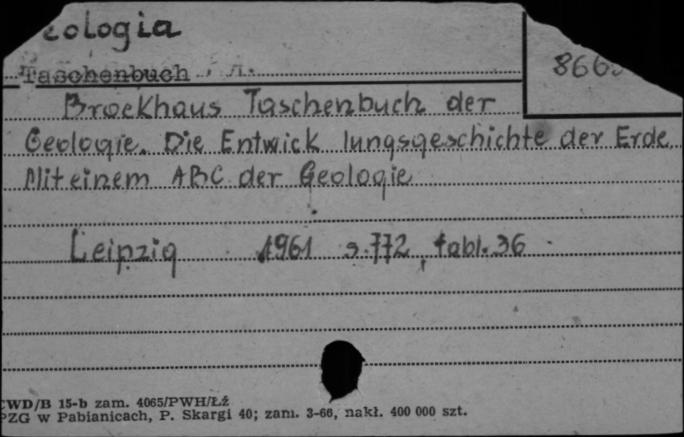 eologia
Taschenbuch
866
Brockhaus Taschenbuch der
Geologie. Die Entwick lungsgeschichte der Erde
Mit einem ABC der Geologie
Leipzig 1961 s. 772, tabl. 36
CWD/B 15-b zam. 4065/PWH/Łź
PZG w Pabianicach, P. Skargi 40; zam. 3-66, nakł. 400 000 szt.